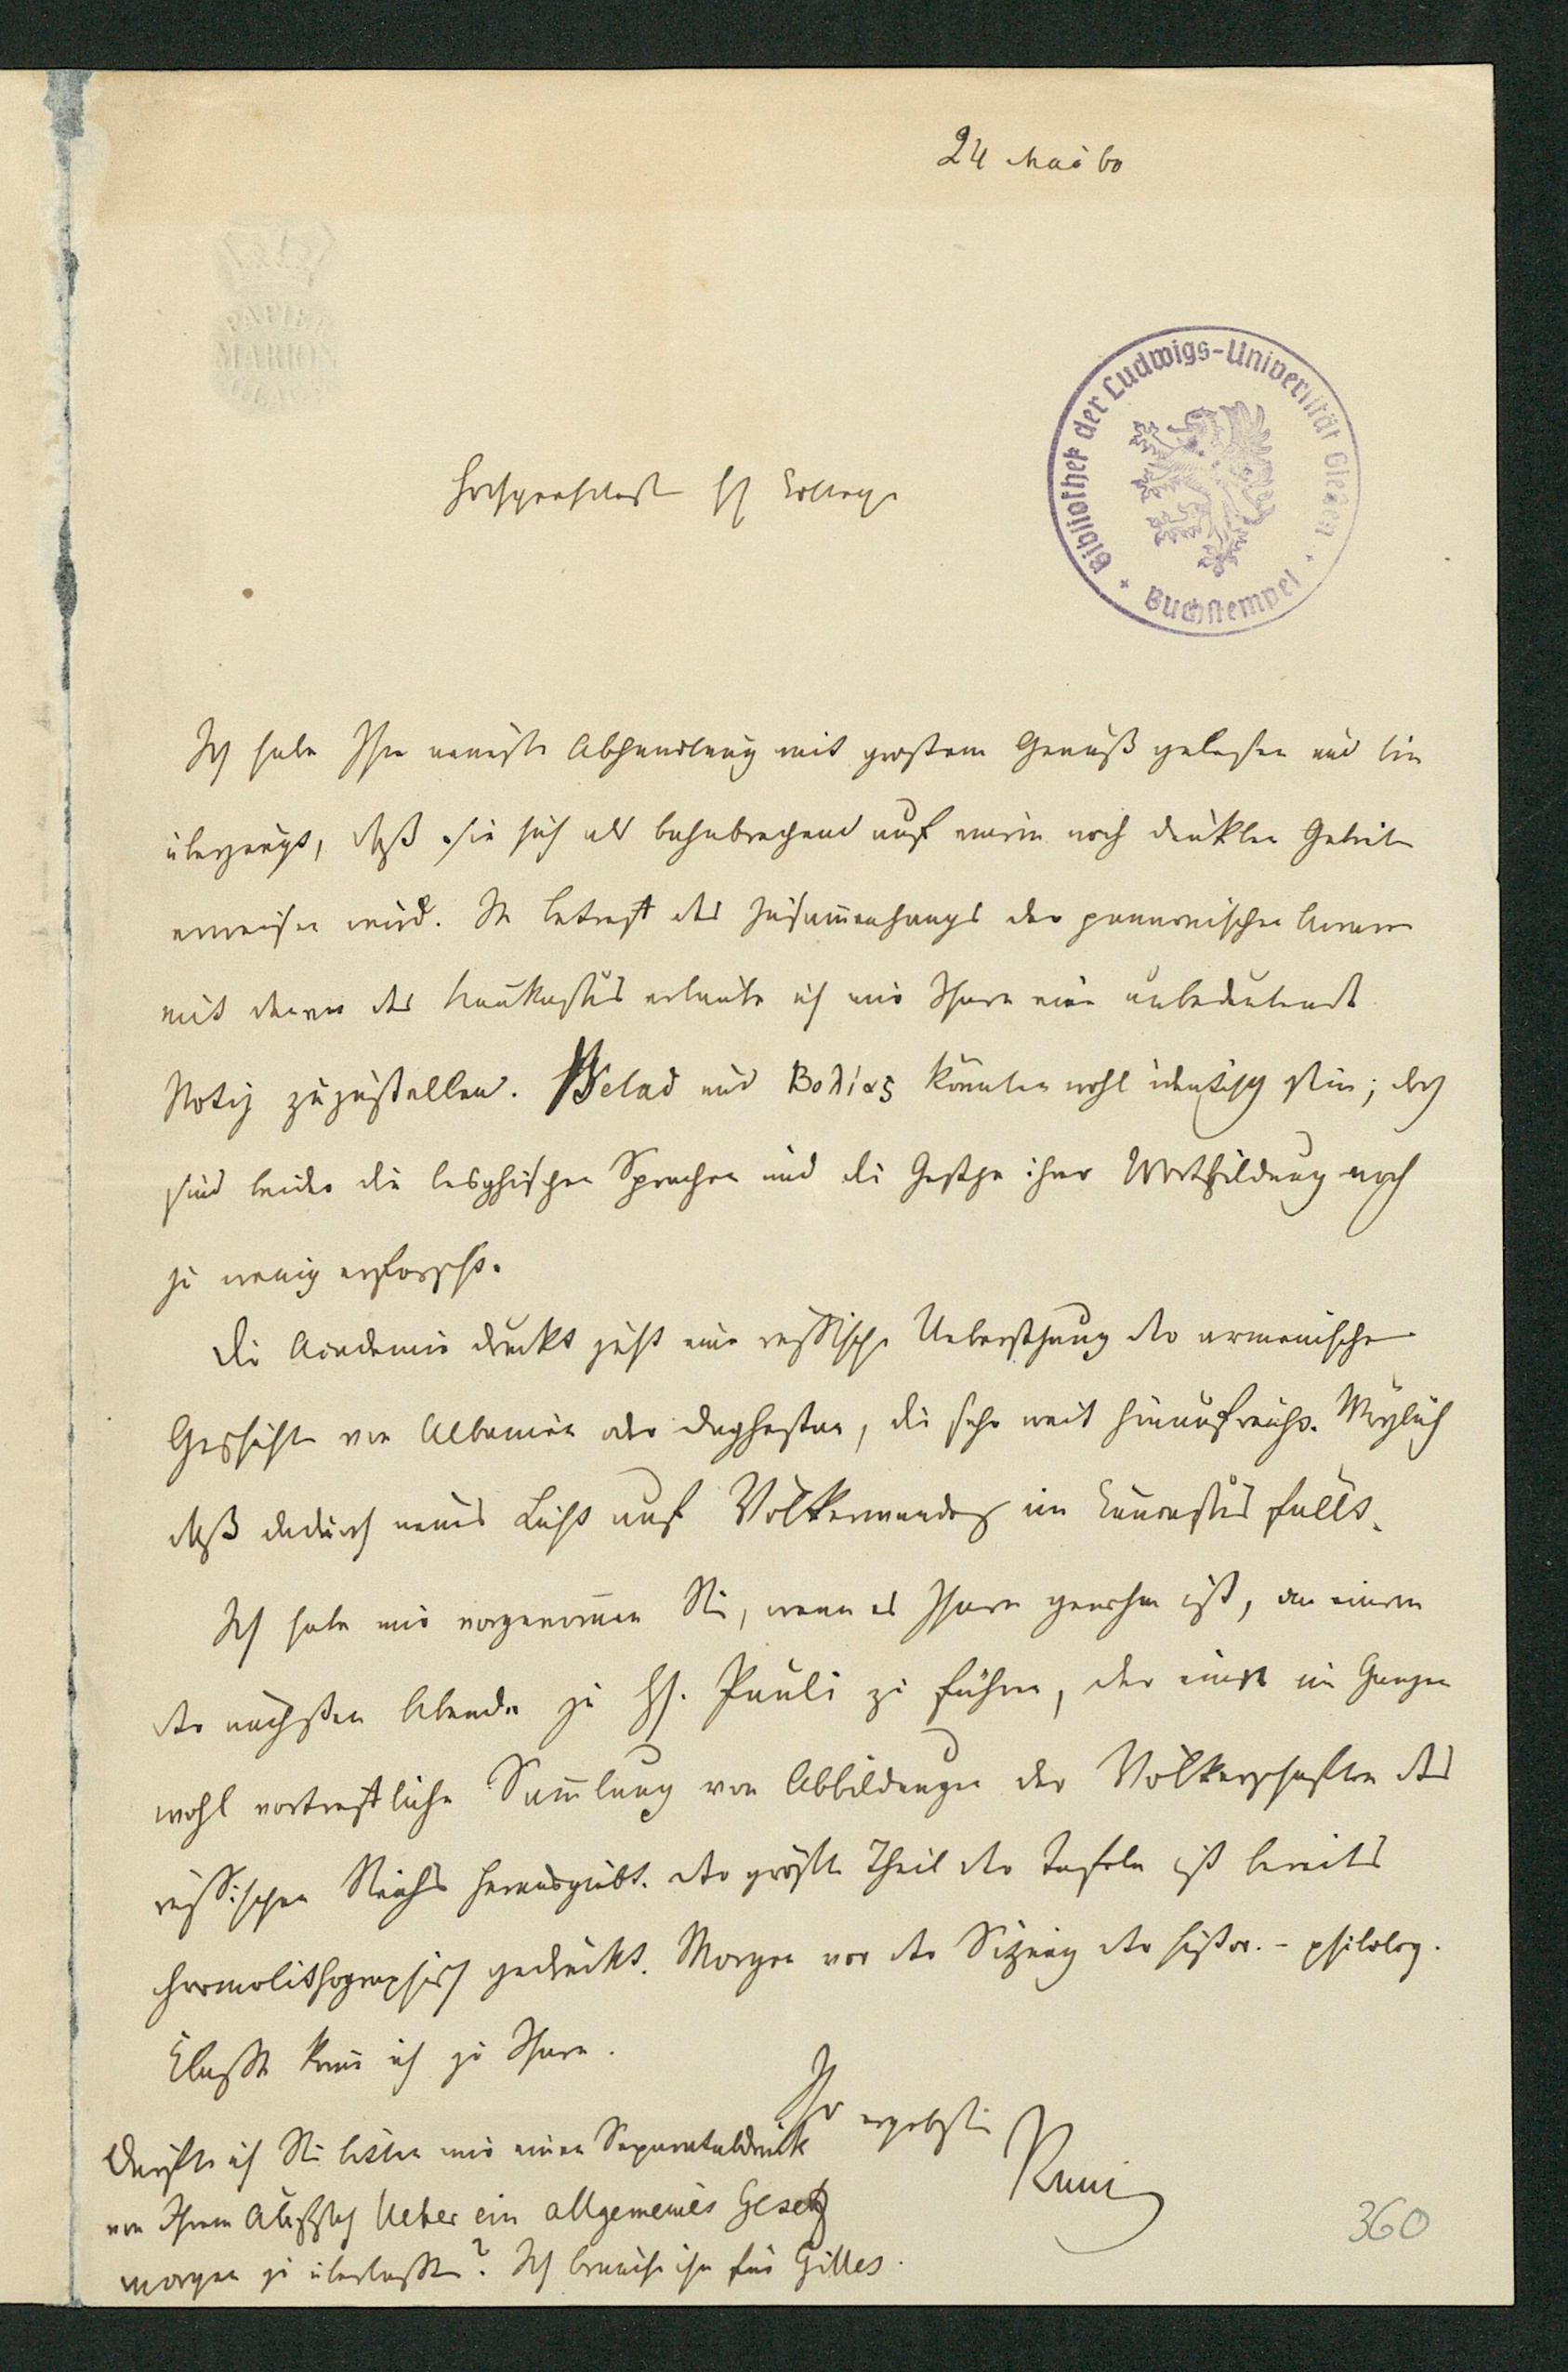 24 Mai 60
Bibliothek der Ludwigs-Universität Gießen
Buchstempel
Hochgeehrtester H College
Ich habe Ihre neueste Abhandlung mit großem Genuß gelesen und bin
überzeugt, daß sie sich als bahnbrechend auf einem noch dunklen Gebiete
erweisen wird. In betreff des Zusammenhangs der pannonischen Avaren
mit denen des Kaukasus erlaube ich mir Ihnen eine unbedeutende
Notiz zuzustellen. Belad und Βοδίας könnten wohl identisch sein; doch
sind leider die lesghischen Sprachen und die Gesetze ihrer Wortbildung noch
zu wenig erforscht.
Die Academie druckt jetzt eine russische Uebersetzung der armenischen
Geschichte von Albanien oder Daghestan, die sehr weit hinaufreicht. Möglich
daß dadurch neues Licht auf im Caucasus fällt.
Ich habe mir vorgenommen Sie, wenn es Ihnen genehm ist, an einem
der nächsten Abende zu H. Pauli zu führen, der eine im Ganzen
wohl vortreffliche Sammlung von Abbildungen der Völkerschaften des
russischen Reichs herausgiebt. Der größte Theil der Tafeln ist bereits
chromolithographisch gedruckt. Morgen vor der Sitzung der histor.-philolog.
Classe komme ich zu Ihnen.
Ihr ergebenster
Kunik
Dürfte ich Sie bitten mir einen Separatabdruck
von Ihrem Aufsatz Ueber ein allgemeines Gesetz
morgen zu überlassen? Ich brauche ihn für Gilles.
360